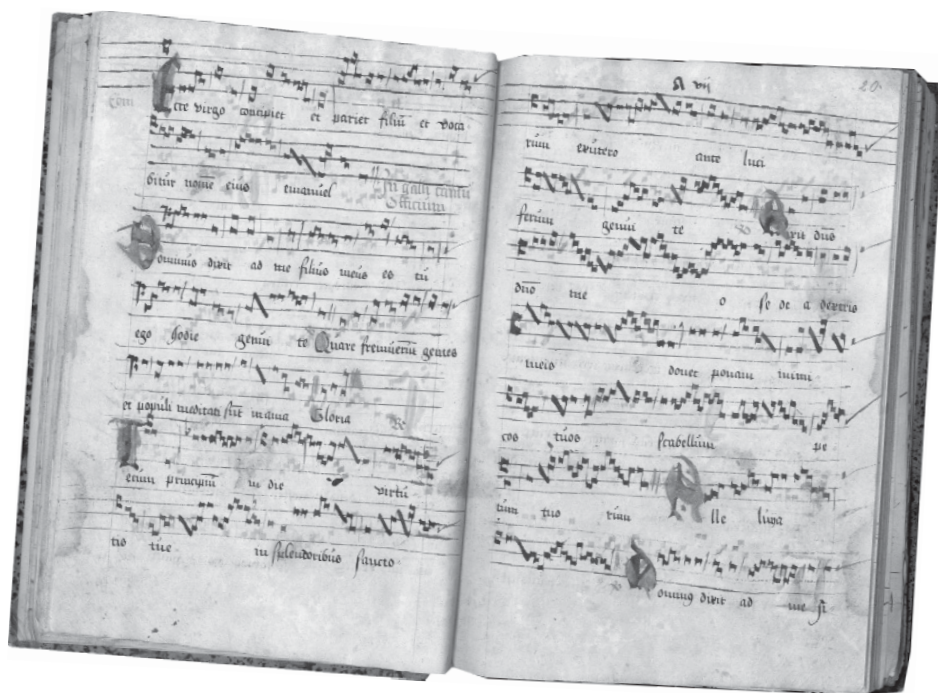 Ecce virgo concipiet et pariet filiū et voca
bitur nomē eius emanuel In galli cantu
Officium
Dominus dixit ad me filius meus es tu
ego hodie genui te Quare fremuerūt gentes
et populi meditati sūt inania Gloria
Tecum principiū in die virtu
tis tue in splendoribus sancto
A vij
20
rum exutero ante luci
ferum genui te Dixit dn̄s
dno meo se de a dextris
meis donec ponam inimi
cos tuos scabellum pe
dum tuo rum Alle luya
Dominus dixit ad me fi